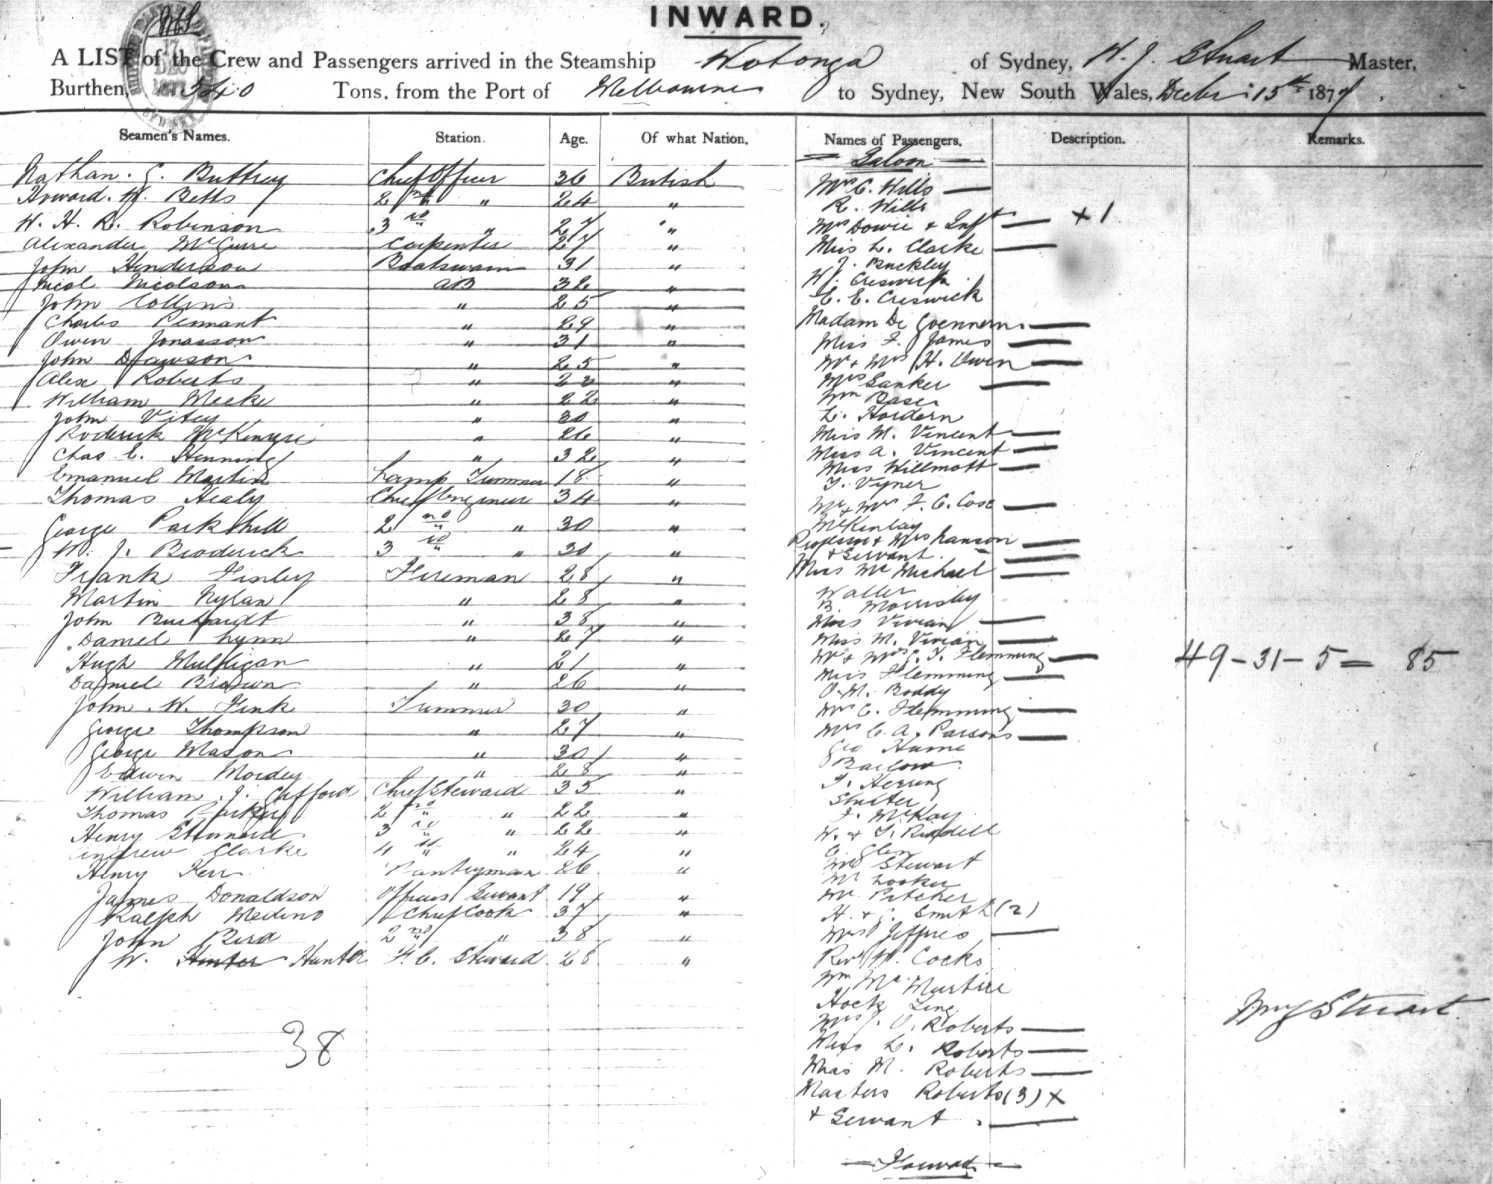 INWARD.
A LIST of the Crew and Passengers arrived in the Steamship Wotonga of Sydney, Stuart Master,
Burthen, 540 Tons, from the Port of Melbourne to Sydney, New South Wales, Decbr 15th 1877.
Seamen's Names. Station. Age. Of what Nation. Names of Passengers. Description. Remarks.
Saloon
Nathan. G. Buttrey Chief Officer 36 British
Howard. W. Betts 2nd " 24 "
W. H. B. Robinson 3rd " 27 "
Alexander McGuire Carpenter 27 "
John Henderson Boatswain 31 "
Nicol Nicolson AB 32 "
John Collins " 25 "
Charles Pennant " 29 "
Owen Jonasson " 31 "
John Dawson " 25 "
Alex Roberts " 22 "
William Meek " 22 "
John " 30 "
Roderick McKenzie " 26 "
Chas C. Henning " 32 "
Emanuel Martin Lamp Trimmer 18 "
Thomas Healy Chief Engineer 34 "
George Parkhill 2nd " 30 "
W. J. Broderick 3rd " 30 "
Frank Finley Fireman 28 "
Martin Nylan " 28 "
John " 38 "
Daniel Lynn " 27 "
Hugh Mulligan " 21 "
Daniel Brown " 26 "
John. W. Fink Trimmer 30 "
George Thompson " 27 "
George Mason " 30 "
Edwin Mordey " 28 "
William J. Gifford Chief Steward 35 "
Thomas Parker 2nd " 22 "
Henry Stennard 3rd " 22 "
Andrew Clarke 4th " 24 "
Henry Kerr Pantryman 26 "
James Donaldson Officers Servant 19 "
Ralph Medino Chief Cook 37 "
John Bird 2nd " 38 "
W. Hunter F. C. Steward 28 "
38
Mrs C. Wills
R. Wills
Mrs Dowie & Inft + 1
Miss L. Clarke
J. Buckley
H J. Creswick
C. E. Creswick
Madam De Goennern
Miss F. James
Mr & Mrs H. Owen
Mrs Lanker
Wm Base
L. Hordern
Miss M. Vincent
Miss A. Vincent
Miss Willmott
T. Vyner
Mr & Mrs F. C. Cose
McKinlay
Professor & Mrs Ranson
& Servant
Miss McMichael
Waller
B. Morrisby
Miss Vivian
Miss M. Vivian
Mr & Mrs J. T. Flemming
Miss Flemming
O. M. Boddy
Mrs C. Flemming
Mrs C. A. Parsons
Geo Hume
Barlow
T. Herring
Slater
J. McKay
W. & T. Riddell
C. Glen
Mrs Stewart
Mr Looker
Mr Pitcher
H. & J. Smith (2)
Mrs Jeffries
Revd W. Cocks
Wm McMartire
Hock Ting
Mrs J. O. Roberts
Miss L. Roberts
Miss M. Roberts
Masters Roberts (3) x
& Servant
49 - 31 - 5 = 85
Stuart